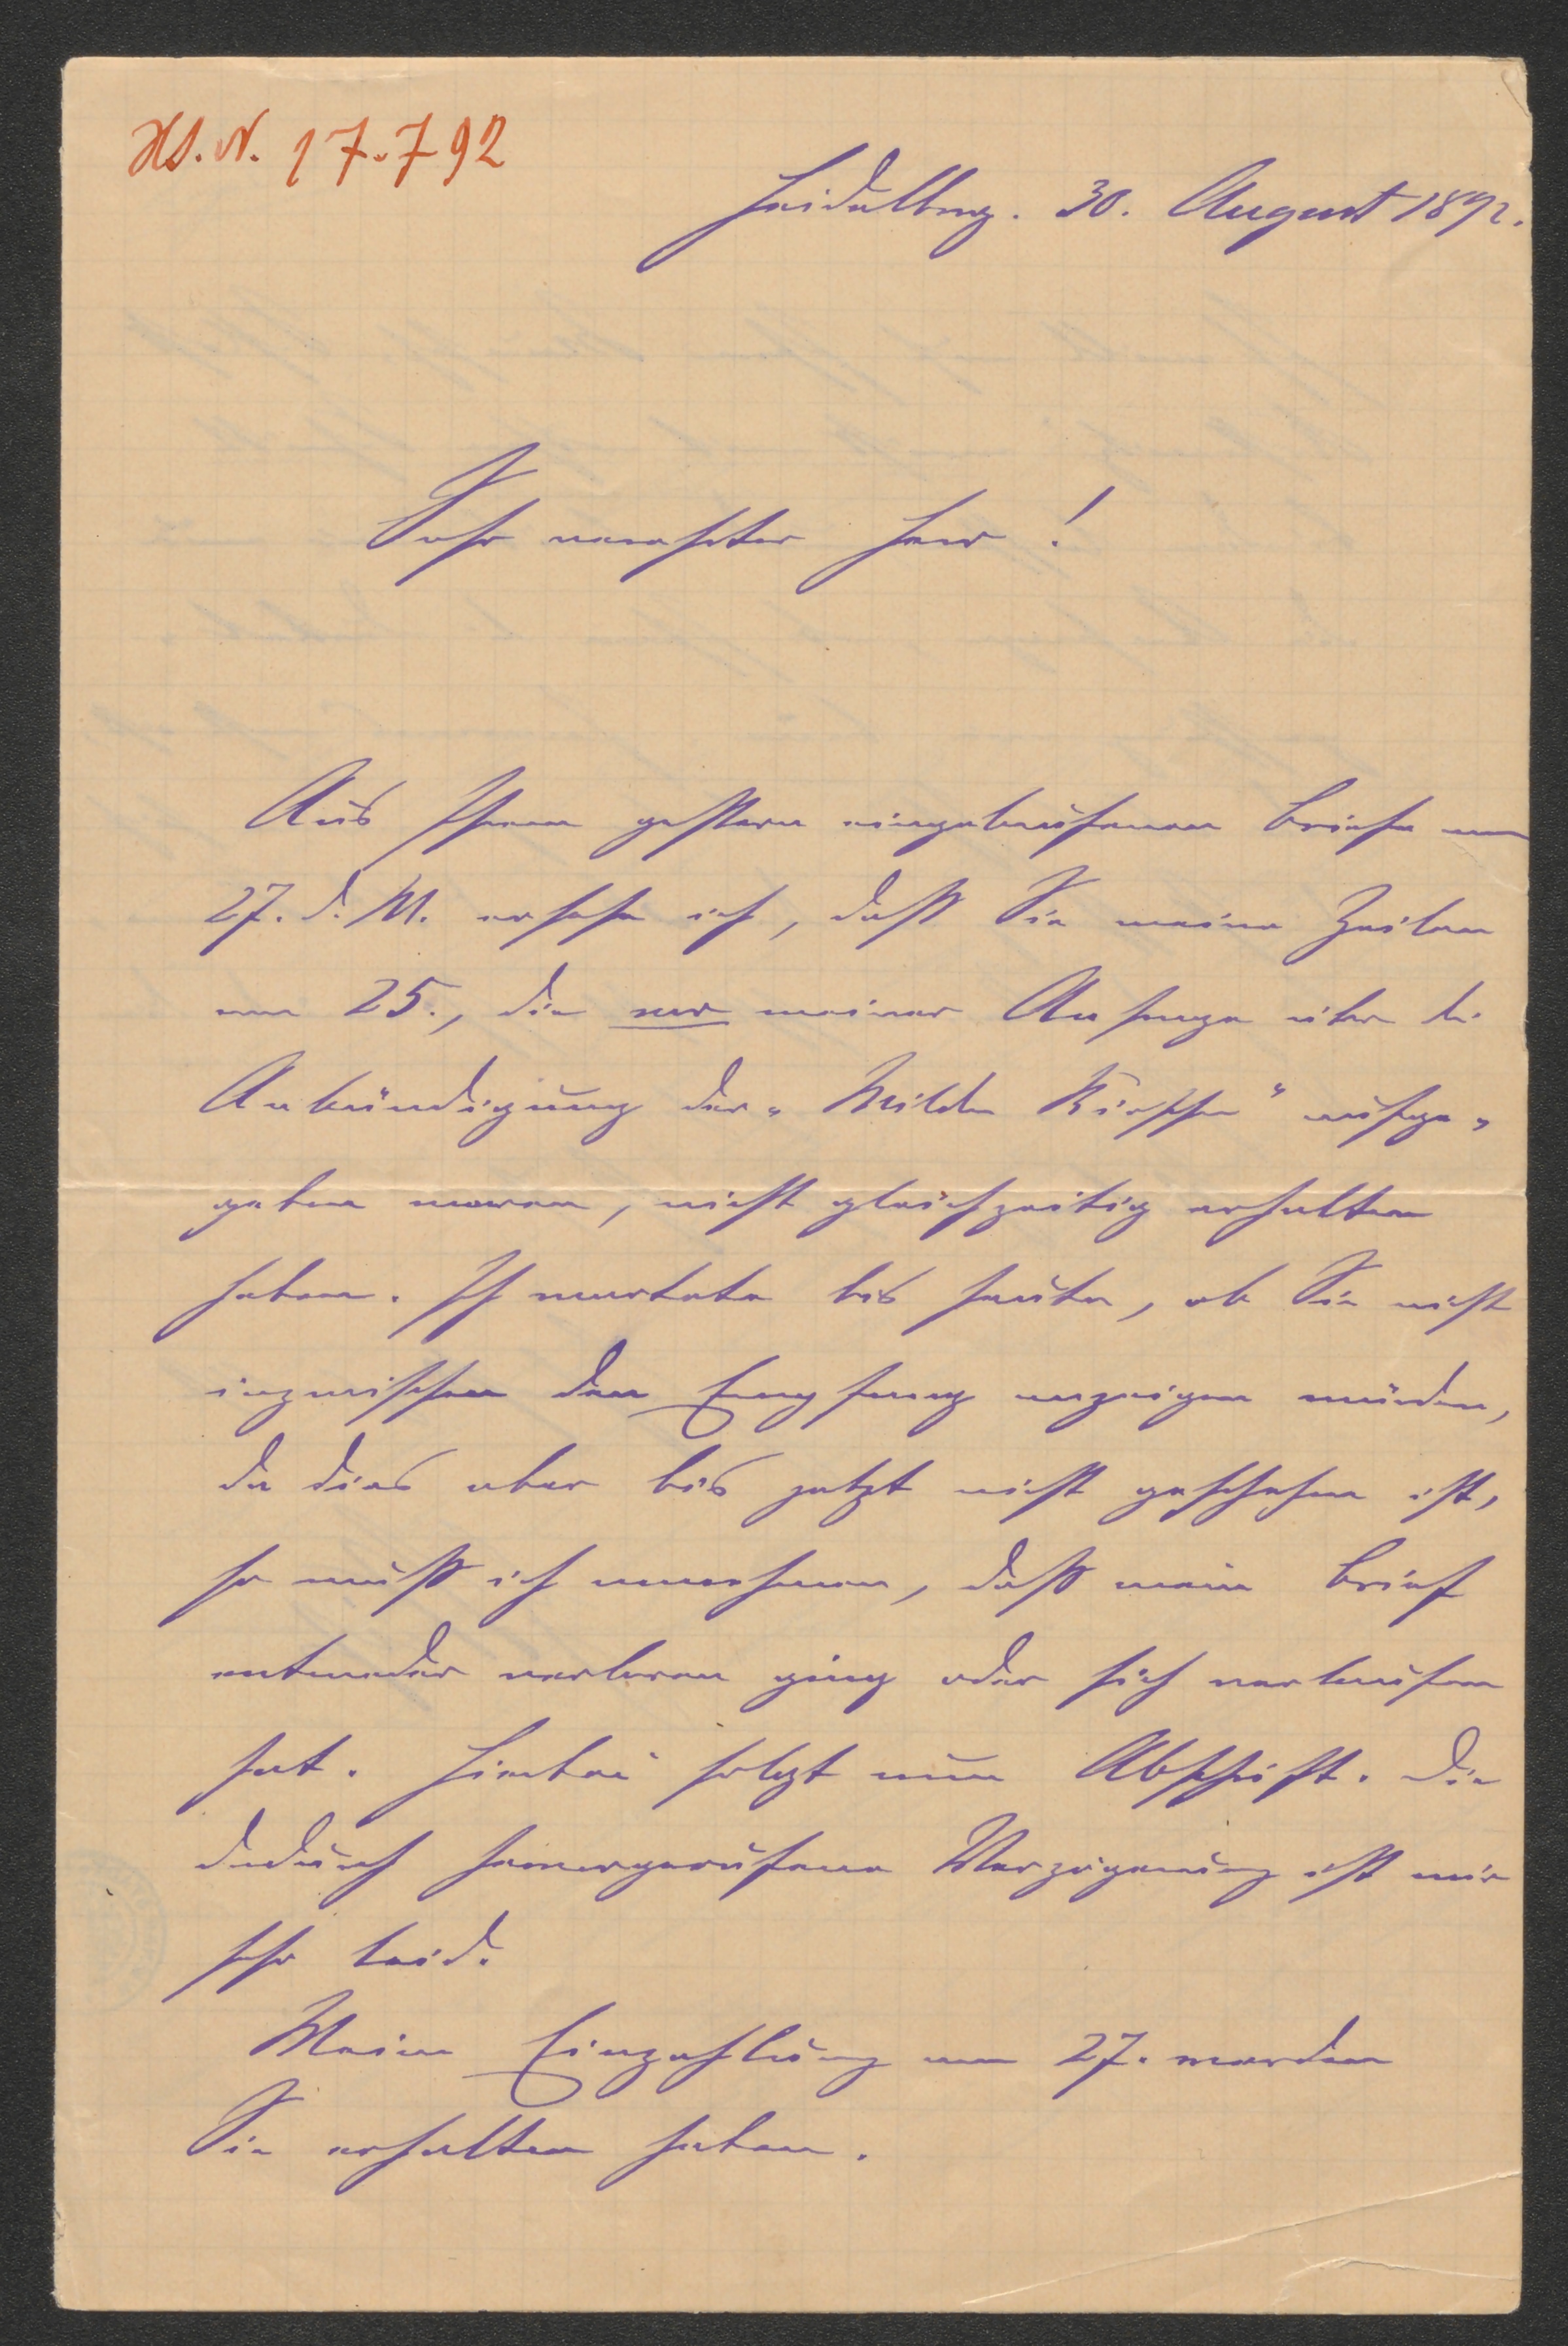 HS. N. 17.792
Heidelberg. 30. August 1892.
Sehr verehrter Herr!
Aus Ihrem gestern eingelaufenen Briefe vom
27. d. M. ersehe ich, daß Sie meine Zeilen
vom 25., die vor meiner Anfrage über die
Ankündigung der „Wilden Kirschen" aufge-
geben waren, nicht gleichzeitig erhalten
haben. Ich wartete bis heute, ob Sie nicht
inzwischen den Empfang anzeigen würden,
da dies aber bis jetzt nicht geschehen ist,
so muß ich annehmen, daß mein Brief
entweder verloren ging oder sich verlaufen
hat. Hierbei folgt nun Abschrift. Die
dadurch hervorgerufene Verzögerung ist mir
sehr leid.
Meine Einzahlung vom 27. werden
Sie erhalten haben.